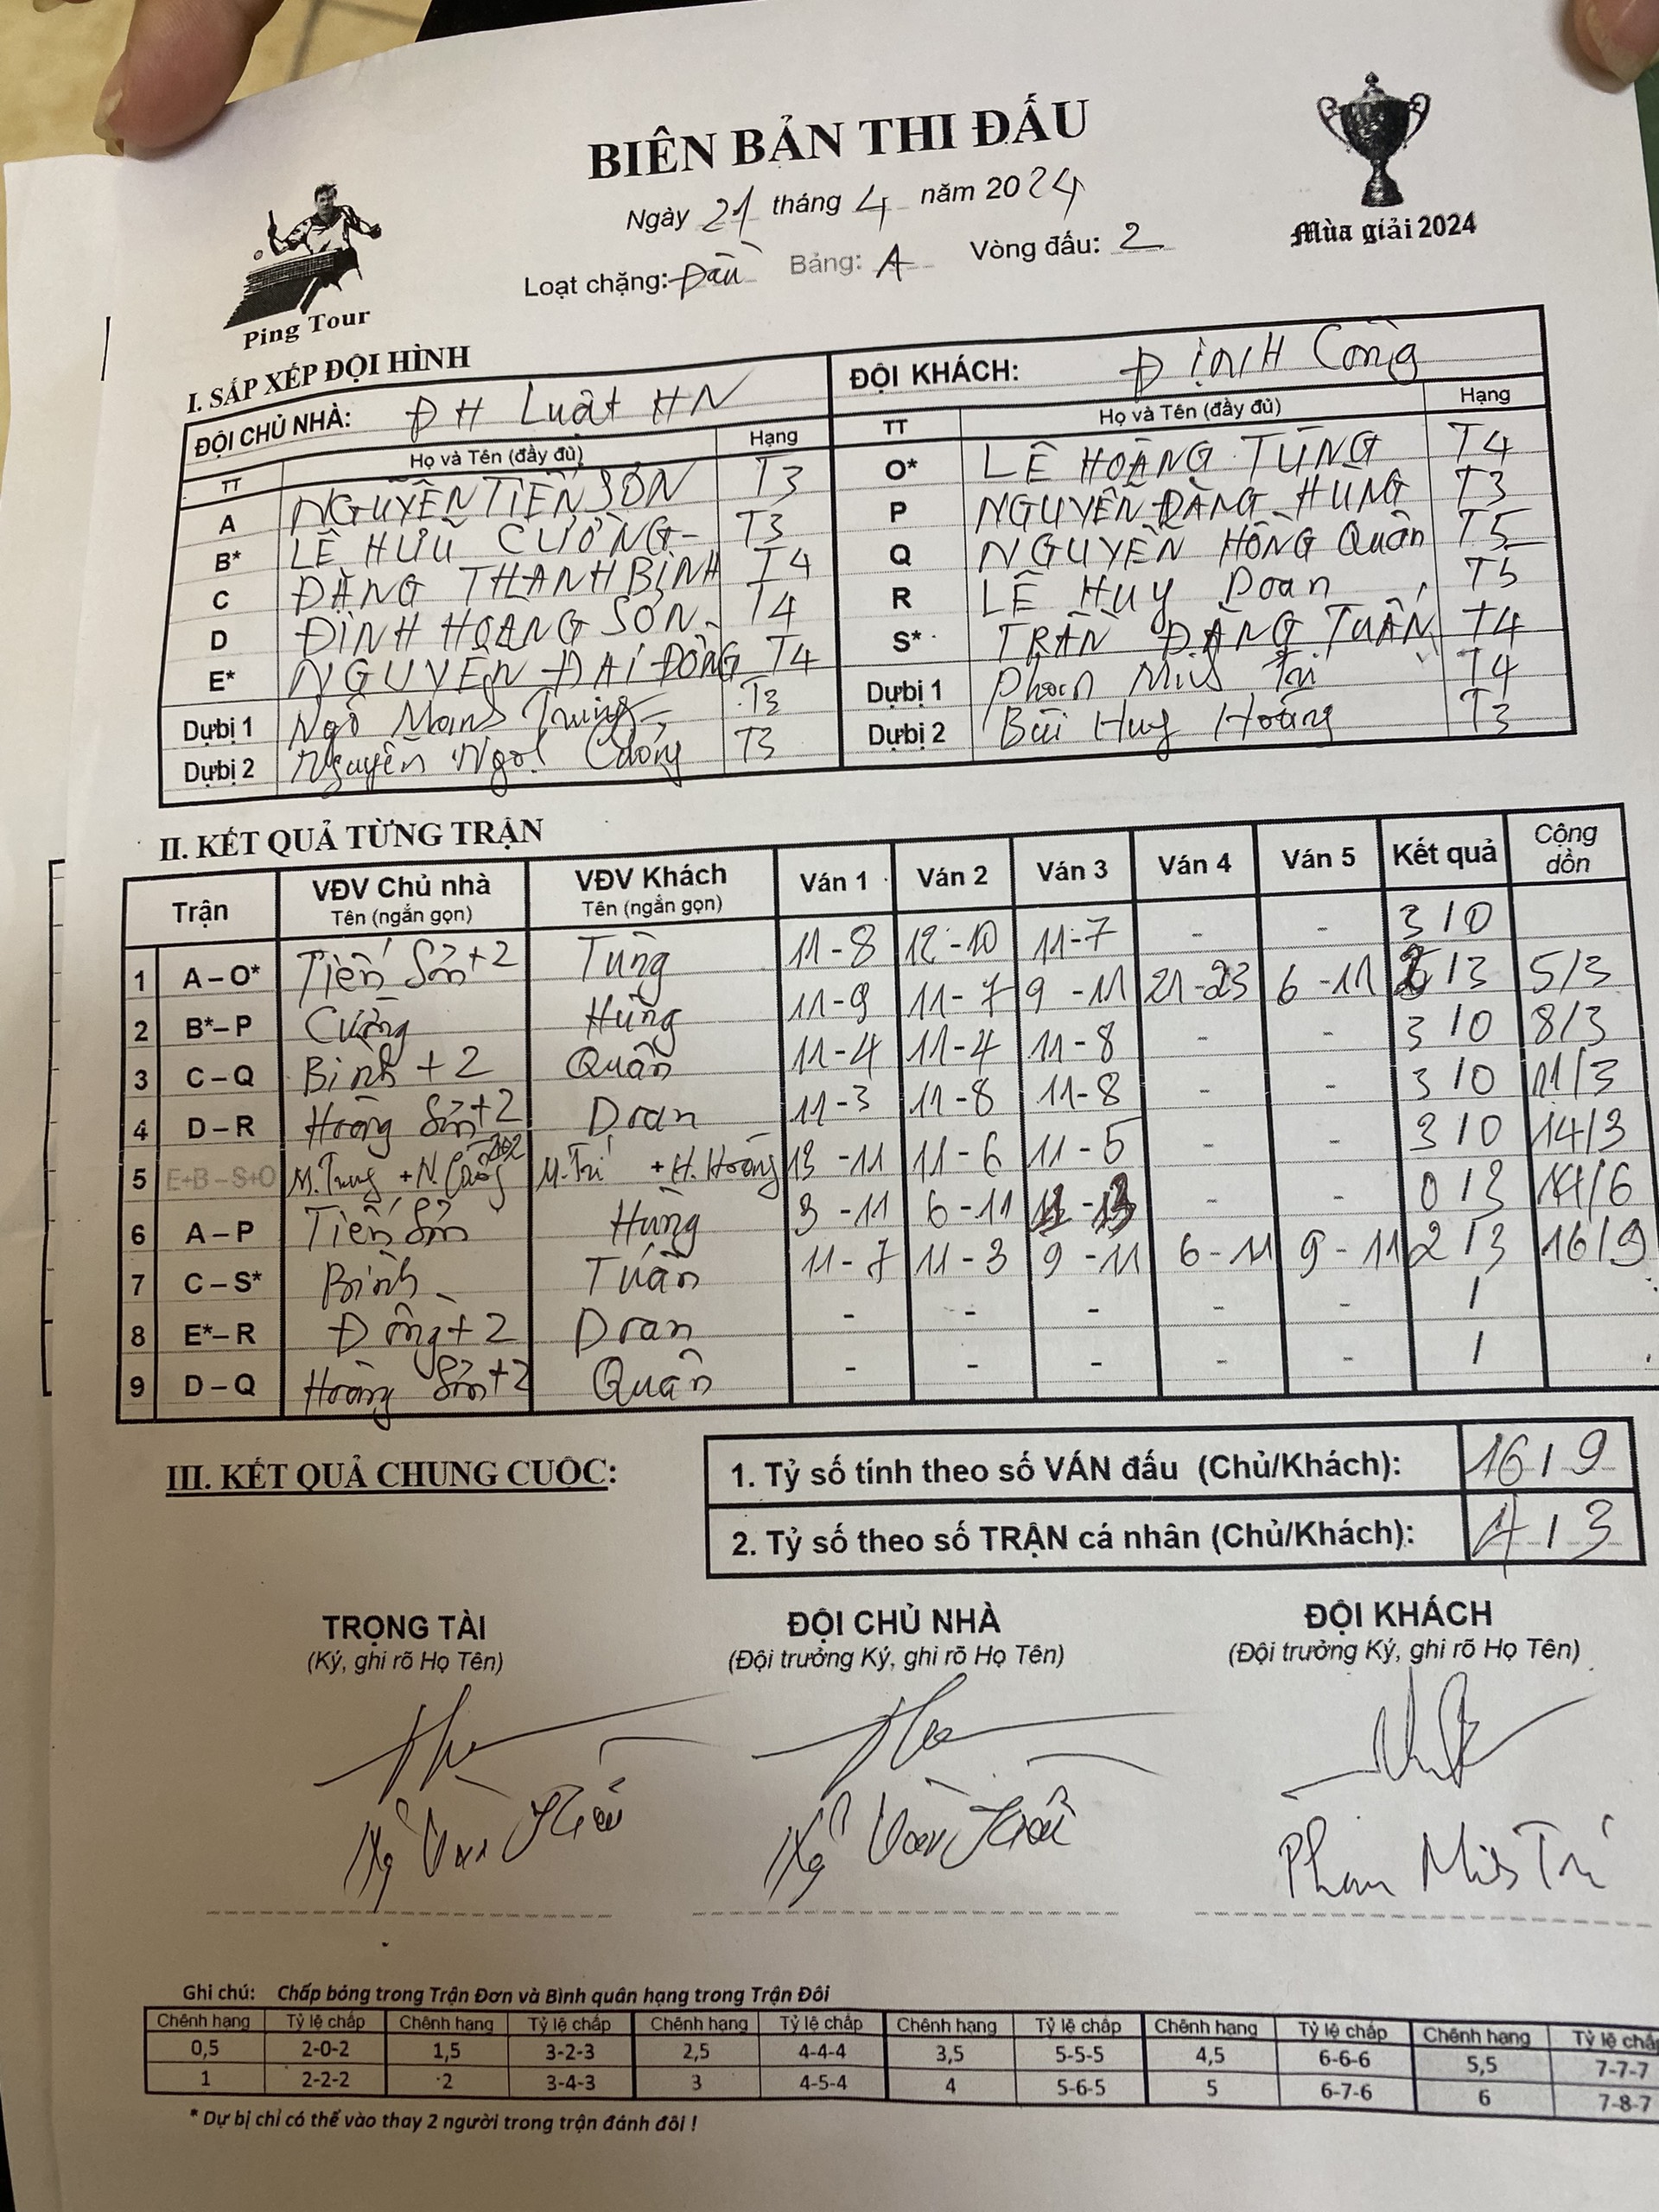 BIÊN BẢN THI ĐẤU
Ngày 21 tháng 4 năm 2024
Loạt chặng: Đầu Bảng: A Vòng đấu: 2
Ping Tour
Mùa giải 2024
I. SẮP XẾP ĐỘI HÌNH
ĐỘI CHỦ NHÀ: ĐH Luật HN ĐỘI KHÁCH: ĐỊNH Công
TT Họ và Tên (đầy đủ) Hạng TT Họ và Tên (đầy đủ) Hạng
A NGUYỄN TIẾN SƠN T3 O* LÊ HOÀNG TÙNG T4
B* LÊ HỮU CƯỜNG T3 P NGUYỄN ĐĂNG HÙNG T3
C ĐẶNG THANH BÌNH T4 Q NGUYỄN HỒNG Quân T5
D ĐINH HOÀNG SƠN T4 R LÊ Huy Doan T5
E* NGUYỄN ĐẠI ĐỒNG T4 S* TRẦN ĐĂNG TUẤN T4
Dự bị 1 Ngô Mạnh Trung T3 Dự bị 1 Phan Minh Trí T4
Dự bị 2 Nguyễn Ngọc T3 Dự bị 2 Bùi Huy Hoàng T3
II. KẾT QUẢ TỪNG TRẬN
Trận VĐV Chủ nhà Tên (ngắn gọn) VĐV Khách Tên (ngắn gọn) Ván 1 Ván 2 Ván 3 Ván 4 Ván 5 Kết quả Cộng dồn
1 A – O* Tiến Sơn+2 Tùng 11-8 12-10 11-7 - - 3/0
2 B*– P Cường Hùng 11-9 11-7 9-11 21-23 6-11 2/3 5/3
3 C – Q Bình+2 Quân 11-4 11-4 11-8 - - 3/0 8/3
4 D – R Hoàng Sơn+2 Doan 11-3 11-8 11-8 - - 3/0 11/3
5 E+B – S+O M.Trung +N. M.Trí +H.Hoàng 13-11 11-6 11-5 - - 3/0 14/3
6 A – P Tiến Sơn Hùng 3-11 6-11 - - 0/3 14/6
7 C – S* Bình Tuấn 11-7 11-3 9-11 6-11 9-11 2/3 16/9
8 E*– R Đồng+2 Doan - - - - - /
9 D – Q Hoàng Sơn+2 Quân - - - - - /
III. KẾT QUẢ CHUNG CUỘC:
1. Tỷ số tính theo số VÁN đấu (Chủ/Khách): 16/9
2. Tỷ số theo số TRẬN cá nhân (Chủ/Khách): 4/3
TRỌNG TÀI ĐỘI CHỦ NHÀ ĐỘI KHÁCH
(Ký, ghi rõ Họ Tên) (Đội trưởng Ký, ghi rõ Họ Tên) (Đội trưởng Ký, ghi rõ Họ Tên)
Phan Minh Trí
Ghi chú: Chấp bóng trong Trận Đơn và Bình quân hạng trong Trận Đôi
Chênh hạng Tỷ lệ chấp Chênh hạng Tỷ lệ chấp Chênh hạng Tỷ lệ chấp Chênh hạng Tỷ lệ chấp Chênh hạng Tỷ lệ chấp Chênh hạng Tỷ lệ chấp
0,5 2-0-2 1,5 3-2-3 2,5 4-4-4 3,5 5-5-5 4,5 6-6-6 5,5 7-7-7
1 2-2-2 2 3-4-3 3 4-5-4 4 5-6-5 5 6-7-6 6 7-8-7
* Dự bị chỉ có thể vào thay 2 người trong trận đánh đôi !